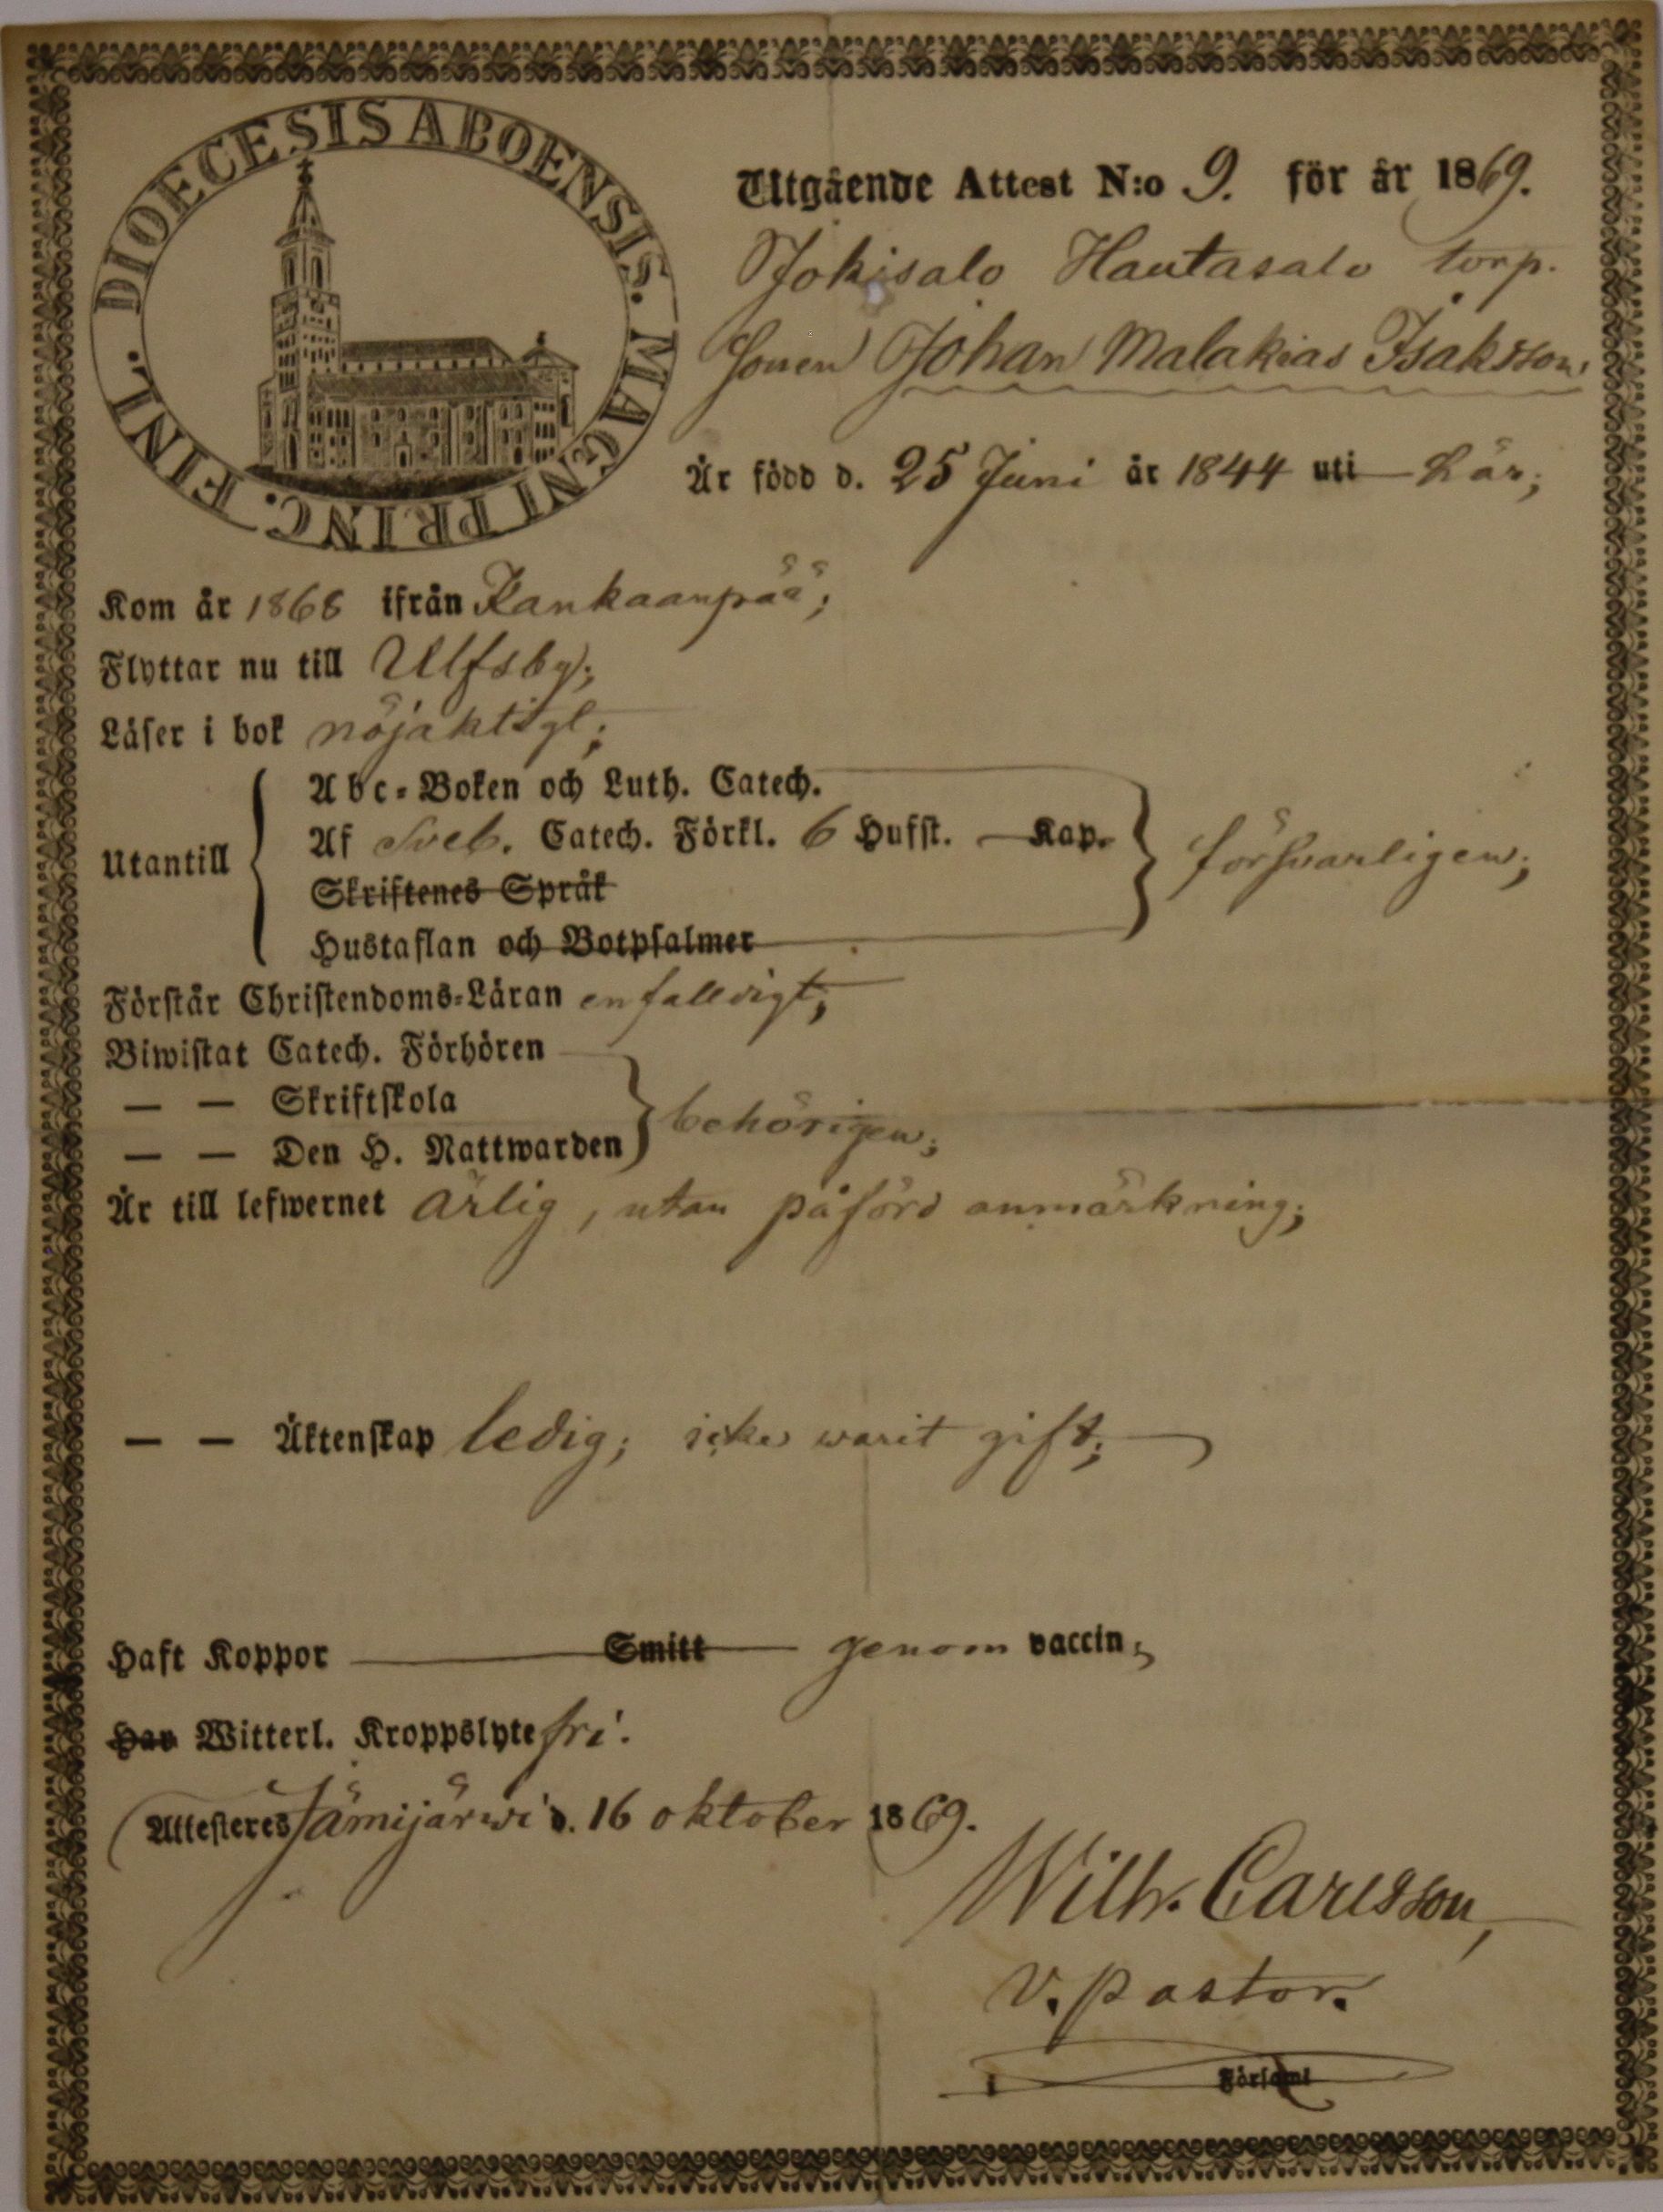 DIOECESIS ABOENSIS. MAGNI PRINC. FINL.
Utgående Attest N:o 9. för år 1869.
Jokisalo Hautasalo torp.
Sonen Johan Malakias Isaksson,
Är född d. 25 Juni år 1844 uti här;
Kom år 1868 ifrån Kankaanpää;
Flyttar nu till Ulfsby;
Läser i bok nöjaktigt;
Utantill
Abc-Boken och Luth. Catech.
Af Sveb. Catech. Förkl. 6 Hufst. Kap.
Skriftenes Språk
Hustaflan och Botpsalmer
försvarligen;
Förstår Christendoms-Läran enfalldigt;
Biwistat Catech. Förhören
— — Skriftskola
— — Den H. Nattwarden
behörigen;
Är till lefwernet ärlig, utan påförd anmärkning;
— — Äktenskap ledig; icke warit gift;
Haft Koppor Smitt genom vaccin;
Har Witterl. Kroppslyte fri.
Attesteres Jämijärwi d. 16 oktober 1869.
Wilh. Carlsson,
V. pastor.
i Församl